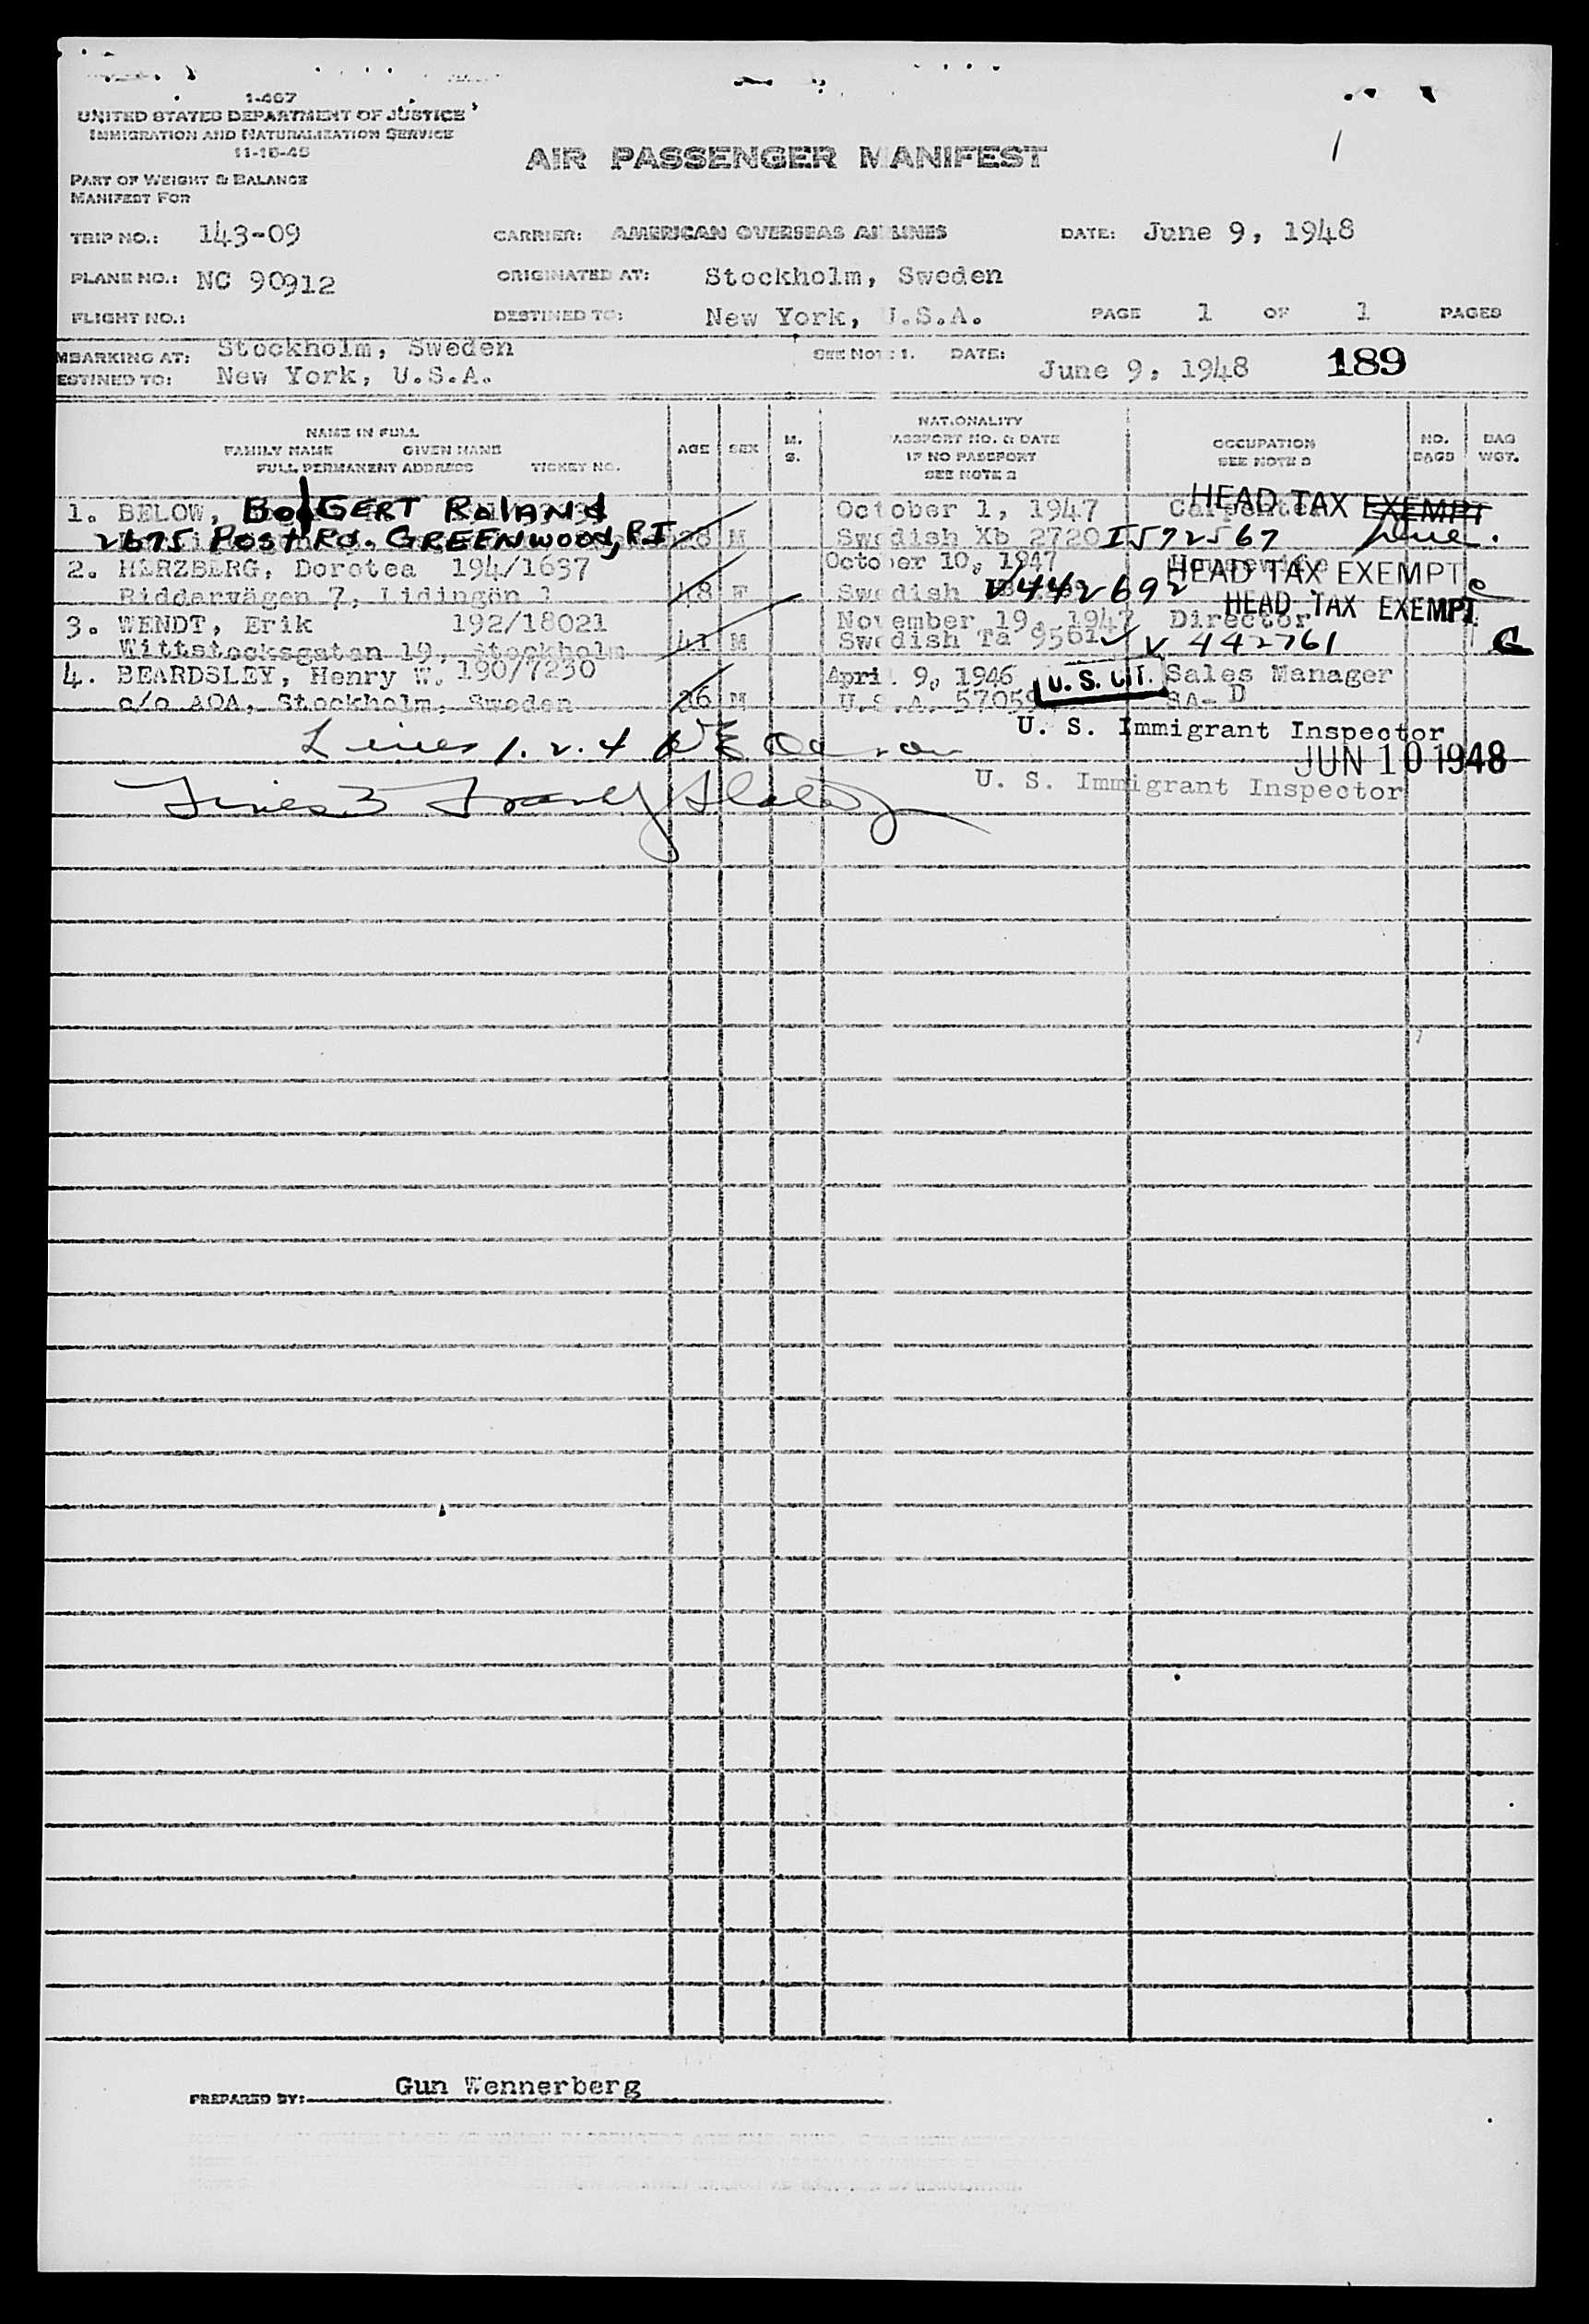 1-467
UNITED STATES DEPARTMENT OF JUSTICE
IMMIGRATION AND NATURALIZATION SERVICE
11-18-45
AIR PASSENGER MANIFEST
1
PART OF WEIGHT & BALANCE
MANIFEST FOR
TRIP NO.: 143-09 CARRIER: AMERICAN OVERSEAS AIRLINES DATE: June 9, 1948
PLANE NO.: NC 90912 ORIGINATED AT: Stockholm, Sweden
FLIGHT NO.: DESTINED TO: New York, U.S.A. PAGE 1 OF 1 PAGES
MBARKING AT: Stockholm, Sweden SEE NOTE 1. DATE: June 9, 1948 189
ESTINED TO: New York, U.S.A.
NAME IN FULL
FAMILY NAME GIVEN NAME
FULL PERMANENT ADDRESS TICKET NO.
AGE SEX M. S.
NATIONALITY
PASSPORT NO. & DATE
IF NO PASSPORT
SEE NOTE 2
OCCUPATION
SEE NOTE 3
NO. BAGS
BAG WGT.
1. BELOW, Bo GERT Roland October 1, 1947 Carpenter HEAD TAX EXEMPT
2675 Post Rd. GREENWOOD, RI 28 M Swedish Xb 2720 I572567
2. HERZBERG, Dorotea 194/1637 October 10, 1947 Housewife HEAD TAX EXEMPT
Riddarvägen 7, Lidingön 1 48 F Swedish V442692
3. WENDT, Erik 192/18021 November 19, 1947 Director HEAD TAX EXEMPT
Wittstocksgatan 19, Stockholm 41 M Swedish Ta 9561 V 442761
4. BEARDSLEY, Henry W. 190/7230 April 9, 1946 U. S. CIT. Sales Manager
c/o AOA, Stockholm, Sweden 36 M U.S.A. 57059 SA- D
Lines 1. 2. 4 U. S. Immigrant Inspector
JUN 10 1948
Lines 3 U. S. Immigrant Inspector
PREPARED BY: Gun Wennerberg